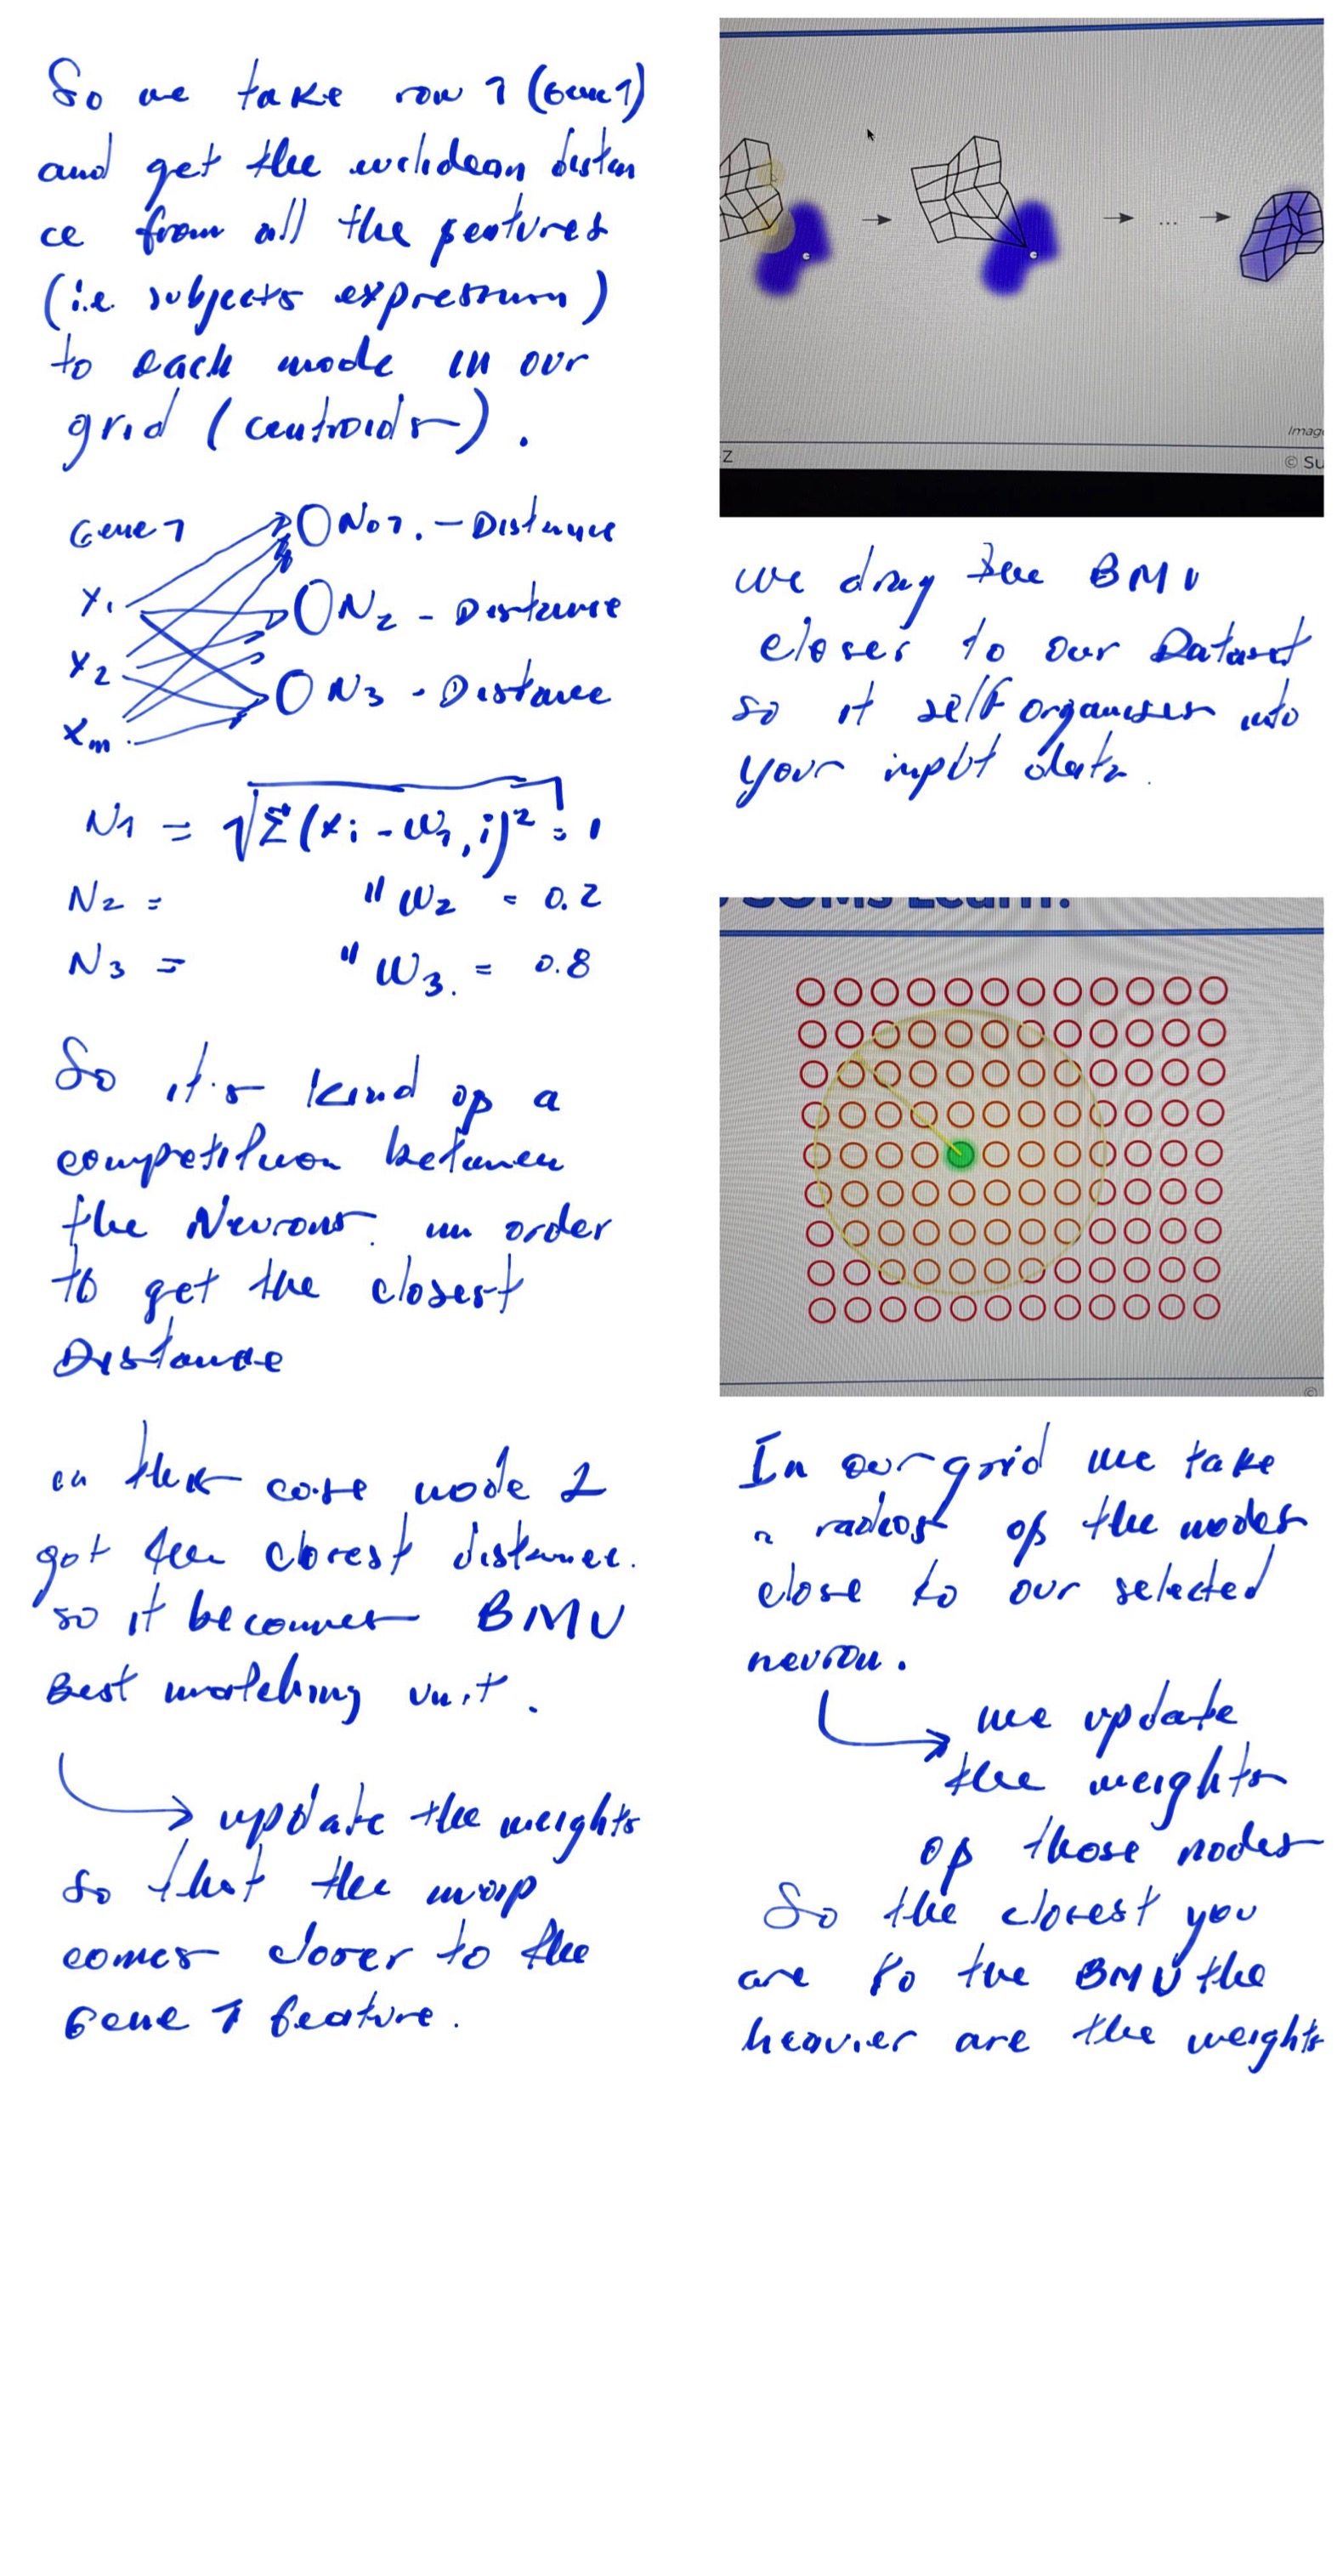 So we take row 1 (Gene 1)
and get the euclidean distan
ce from all the features
(i.e subjects expression)
to each node in our
grid (centroids).
Gene 1
x1
x2
xm
No1. - Distance
N2 - Distance
N3 - Distance
N1 = √Σ(xi - w1,i)² = 1
N2 = " w2 = 0.2
N3 = " w3. = 0.8
So it's kind of a
competition between
the Neurons in order
to get the closest
Distance
in this case node 2
got the closest distance.
so it becomes BMU
Best matching unit.
→ update the weights
so that the map
comes closer to the
Gene 1 feature.
→ ... →
Imag
Z
© Su
we drag the BMU
closer to our Dataset
so it self organises into
your input data.
SOMs Learn?
©
In our grid we take
a radios of the nodes
close to our selected
neuron.
→ we update
the weights
of those nodes
So the closest you
are to the BMU the
heavier are the weights